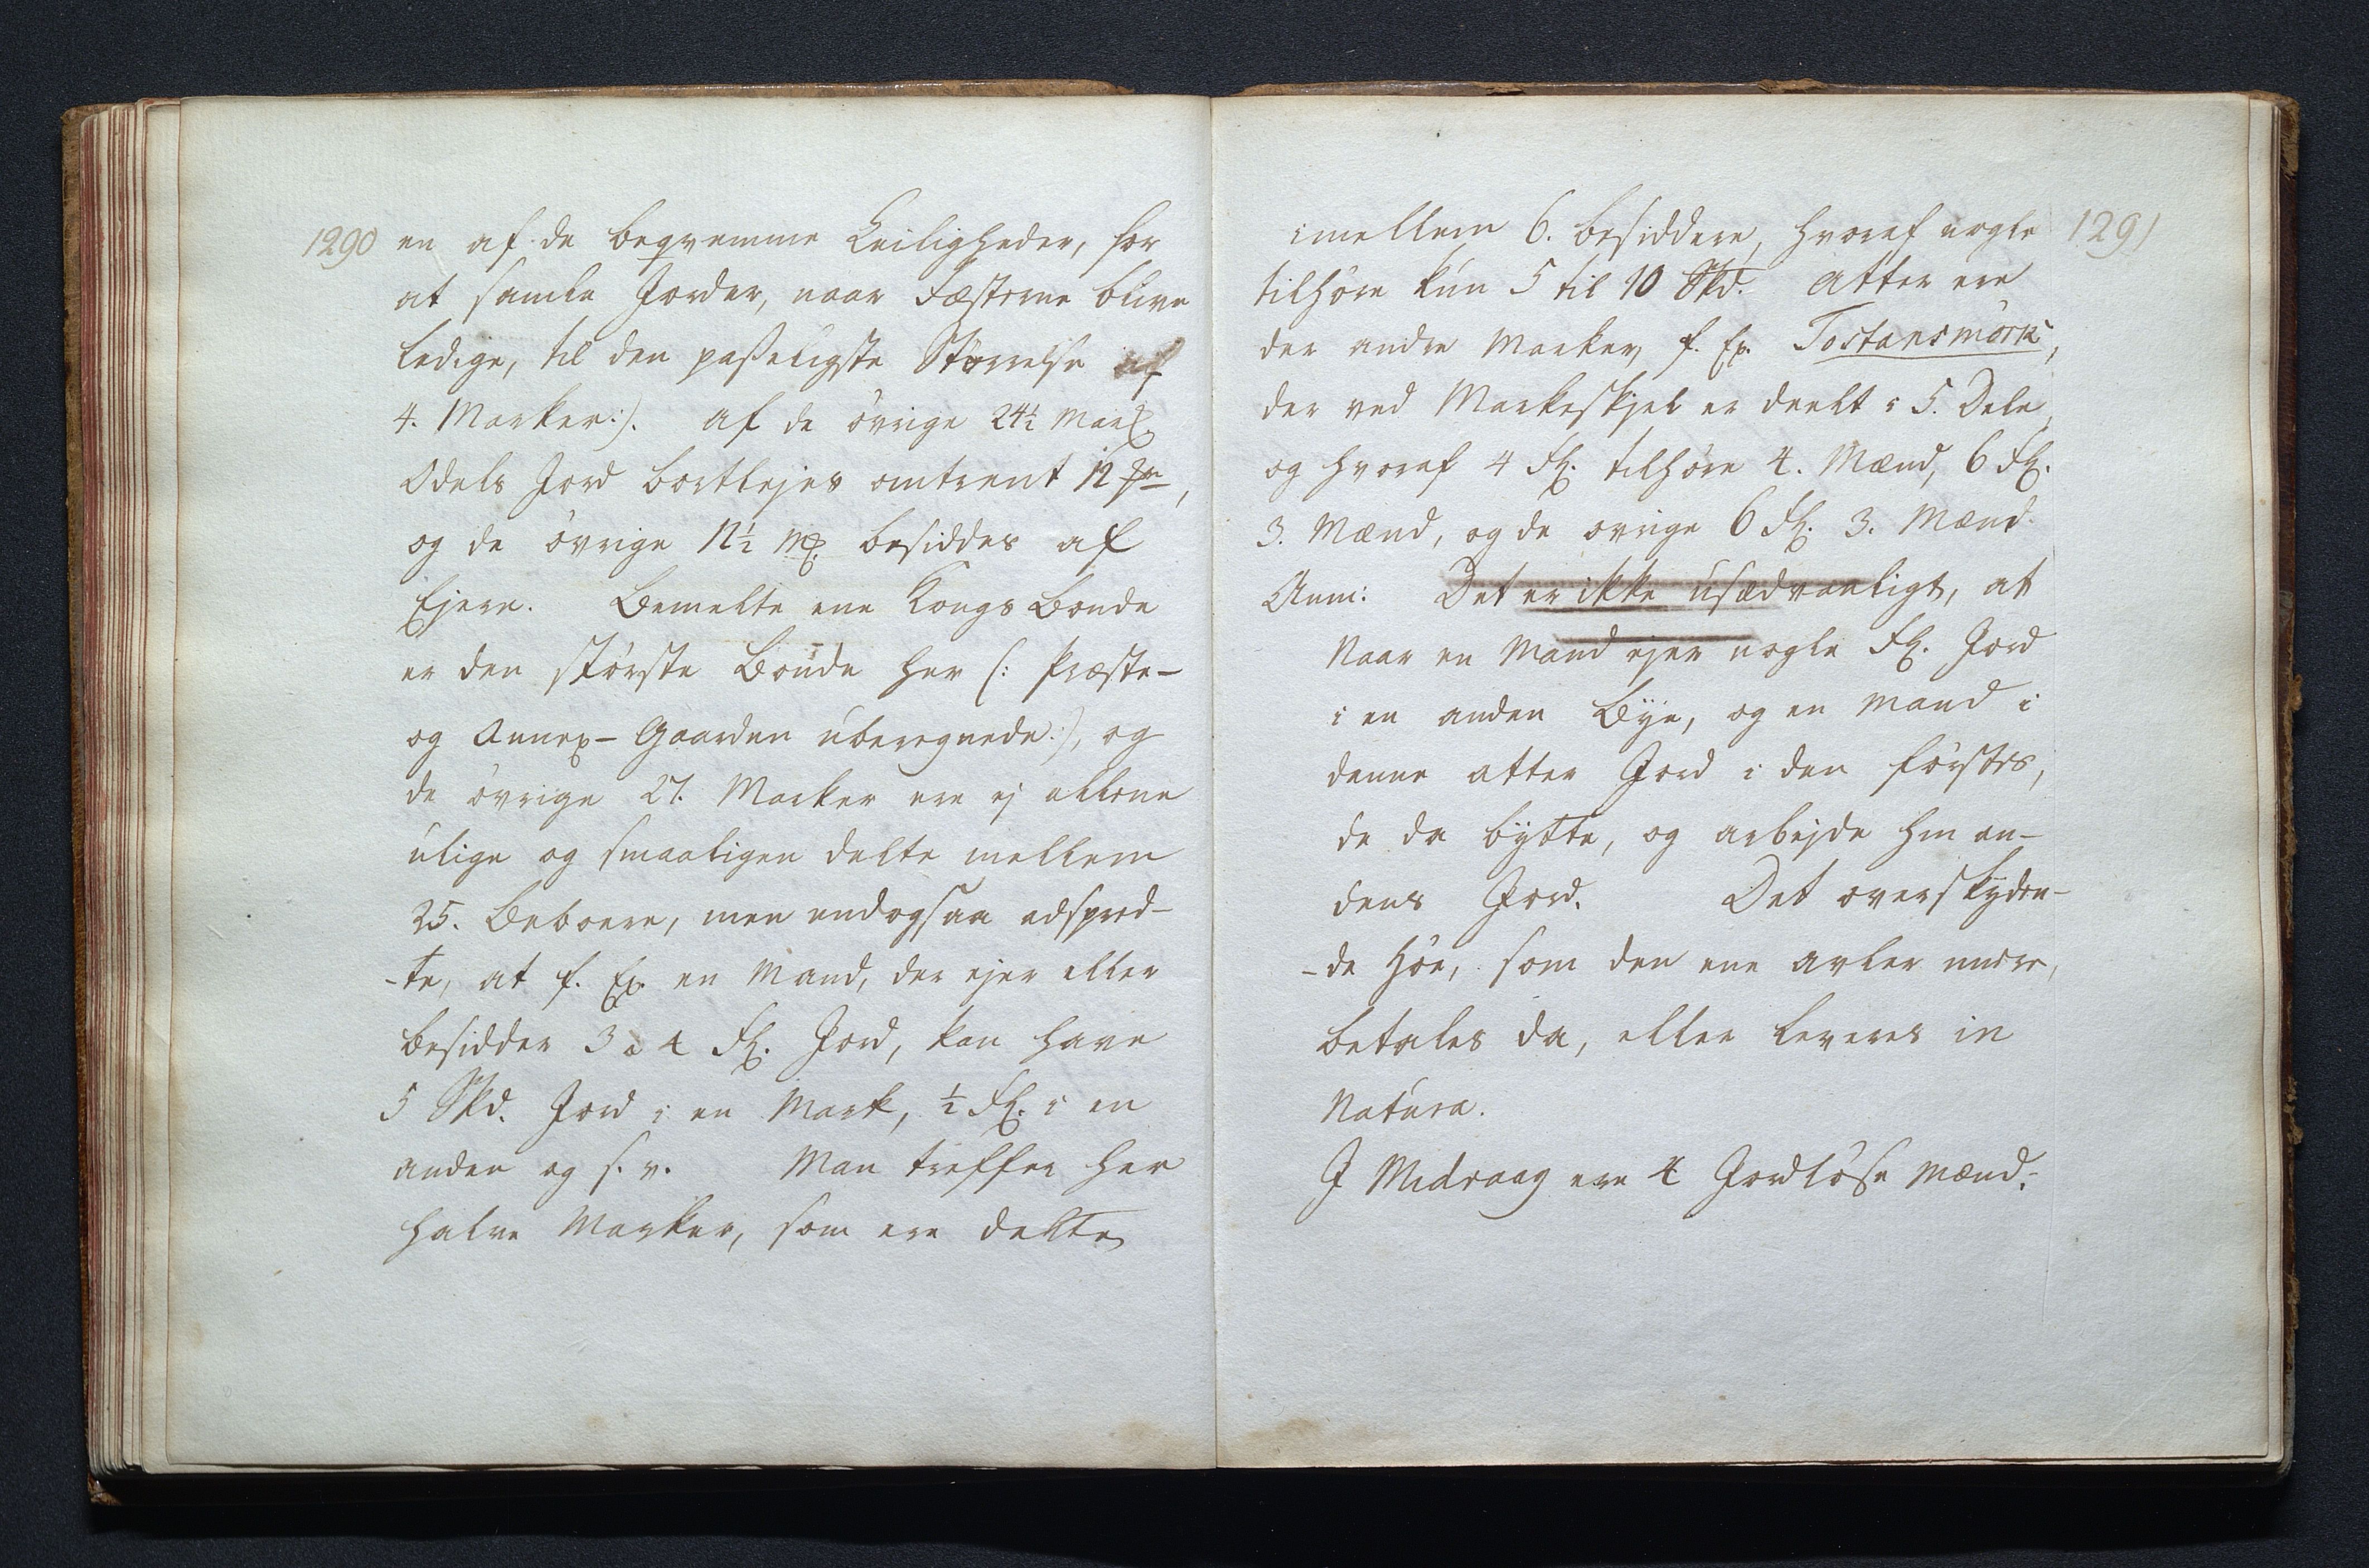 1290 en af de beqvemme Leiligheder, for
at samle Jorder, naar Fæsterne blive
ledige, til den passeligste Størrelse af
4. Marker:). Af de övrige 24½ Mark
Odels Jord bortlejes omtrent 12
og de övrige 12½ M besiddes af
Ejere. Bemelte ene Kongs Bonde
er den störste Bonde her (: Præste-
og Annex-Gaarden uberegnede:), og
de övrige 27. Marker ere ej allene
ulige og smaaligen delte mellem
25. Beboere, men endogsaa adspred-
-te, at f. Ex. en Mand, der ejer eller
besidder 3 a 4 Fl. Jord, kan have
5 Skd. Jord i en Mark, ½ Fl. i en
anden og s. v. Man treffer her
halve Marker, som ere deelte
imellem 6. besiddere, hvoraf nogle 1291
tilhöre kun 5 til 10 Skd. Atter ere
der andre Marker, f. Ex. Tostansmörk,
der ved Markeskjel er deelt i 5. Dele,
og hvoraf 4 Fl. tilhöre 4. Mænd, 6 Fl.
3. Mænd, og de övrige 6 Fl. 3. Mænd.
Anm: Det er ikke usædvanligt, at
Naar en Mand ejer nogle Fl. Jord
i en anden Bye, og en Mand i
denne atter Jord i den förstes,
de da bytte, og arbejde hin an-
dens Jord. Det overskyden-
-de Höe, som den ene avler mere,
betales da, eller leveres in
Natura.
I Midvaag ere 4 Jordlöse Mænd.